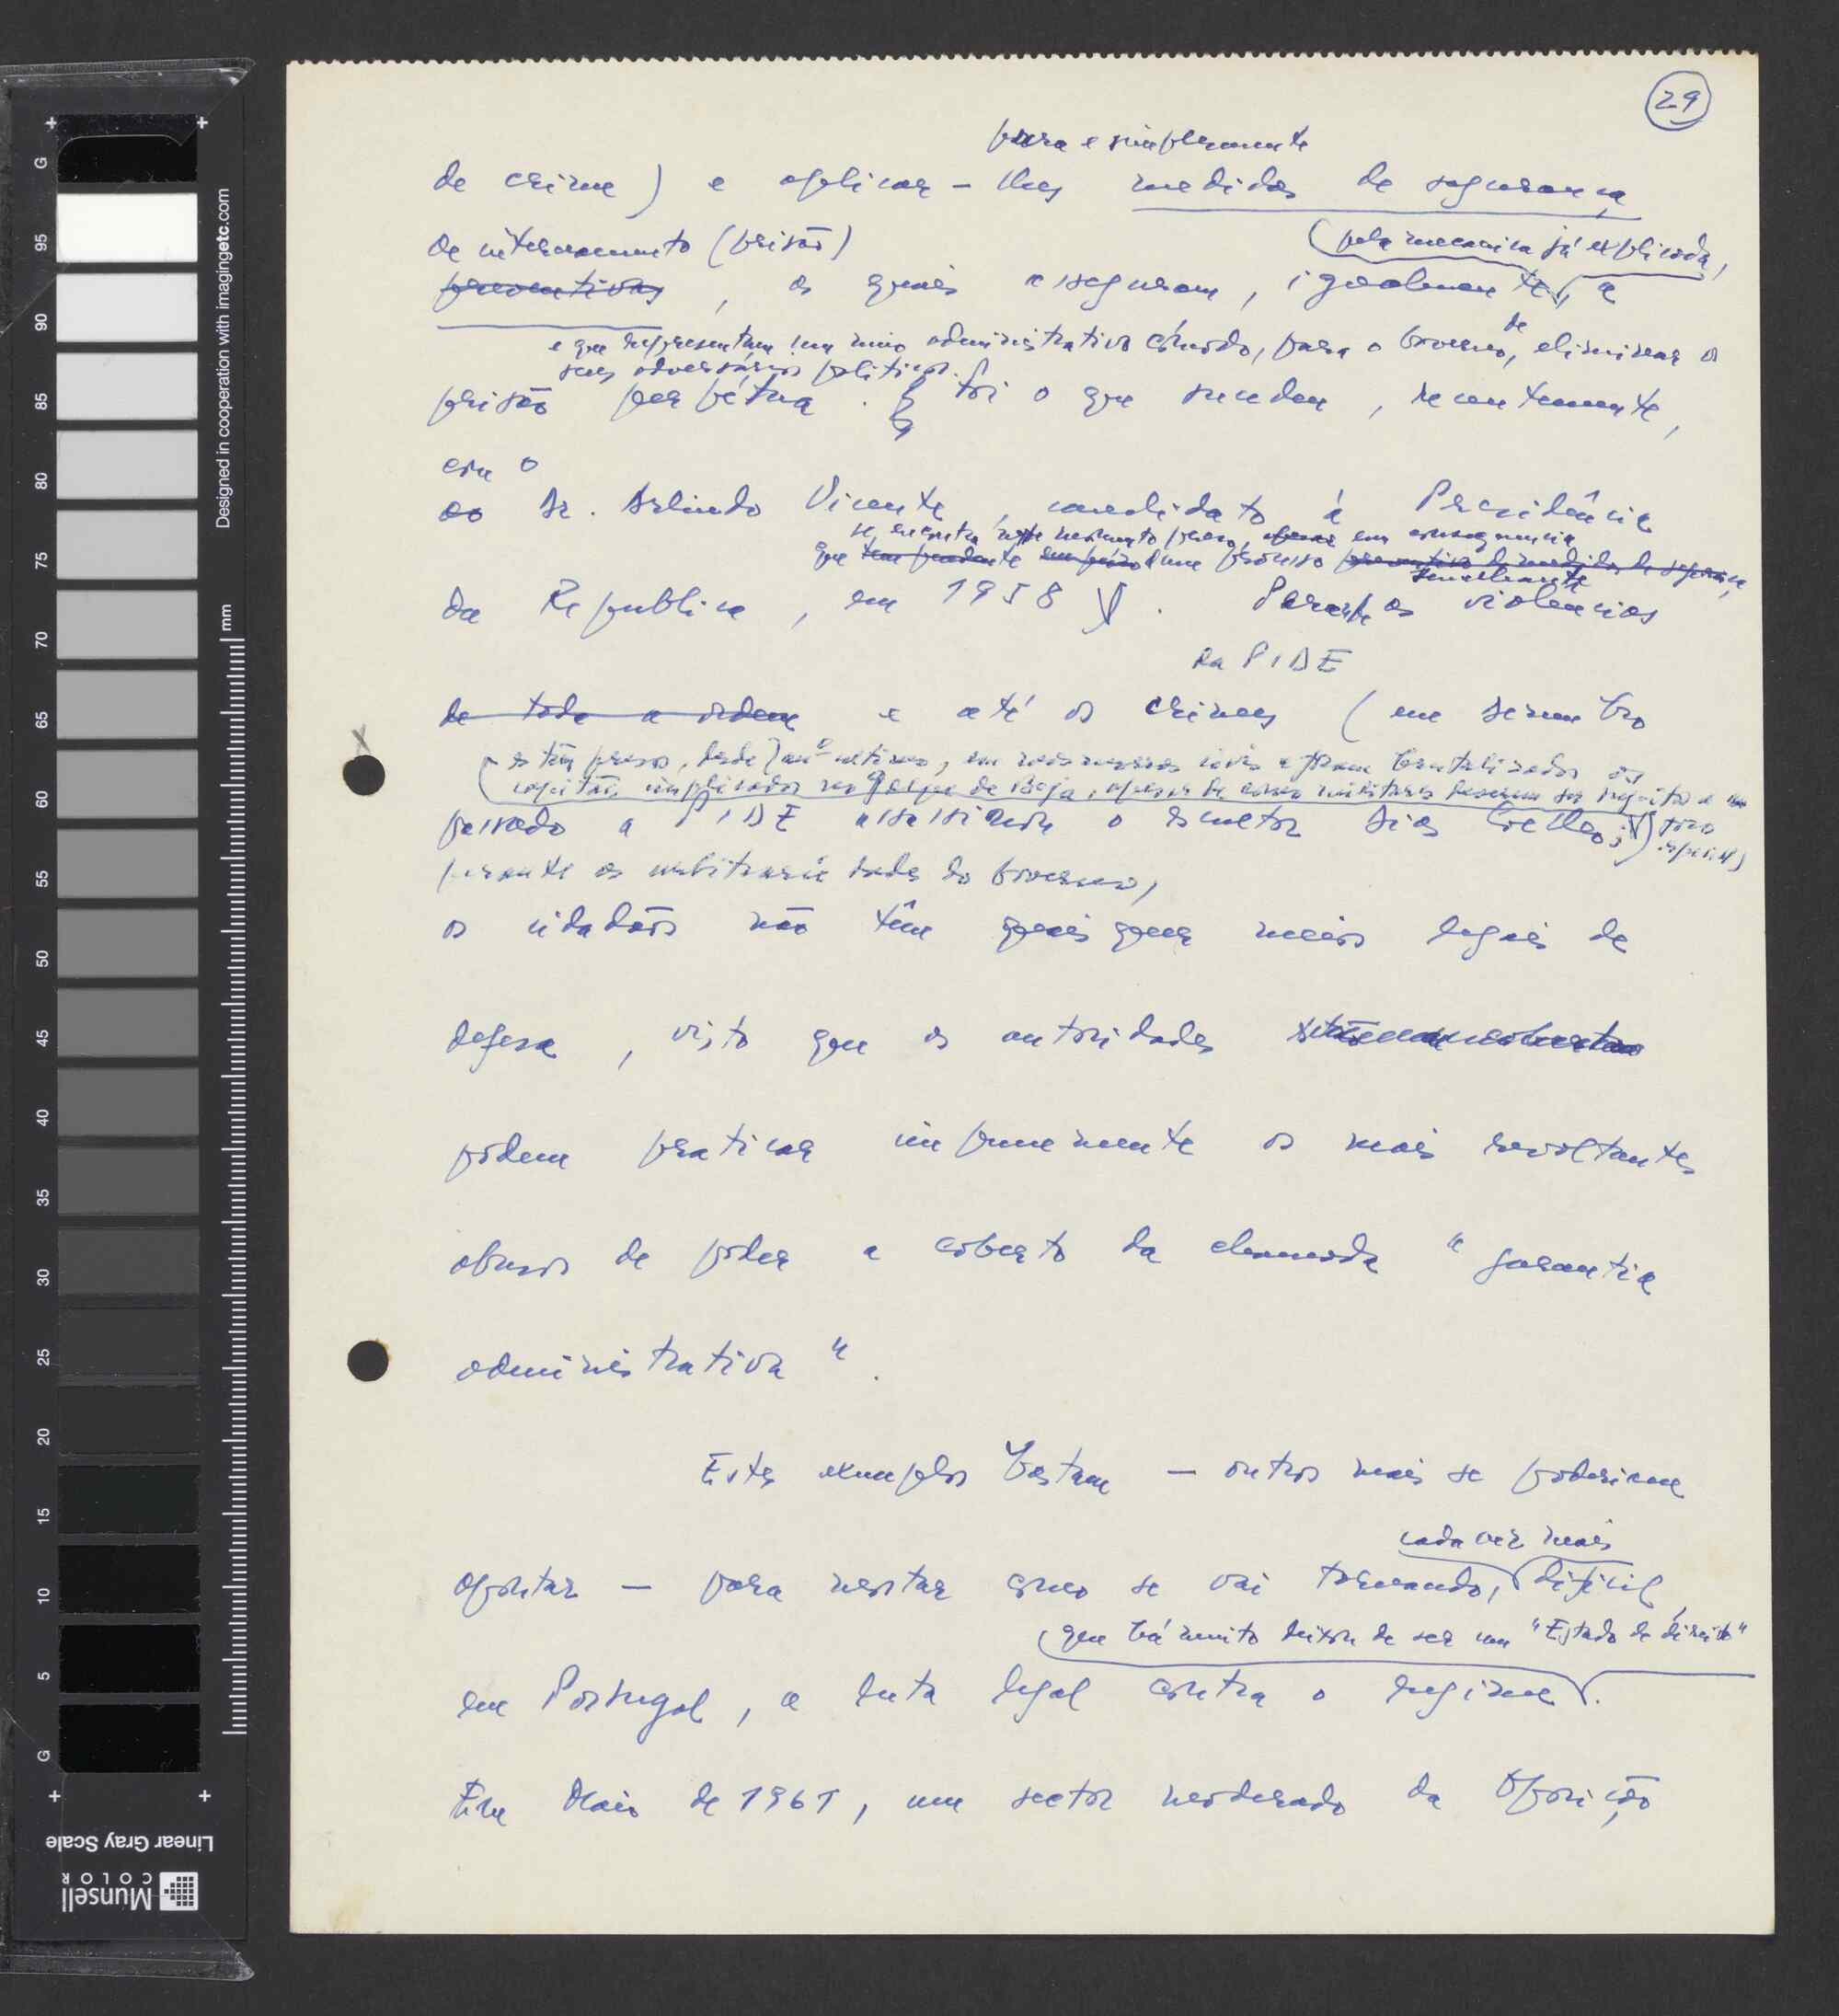 29
pura e simplesmente
de crime) e aplicar-lhes medidas de segurança
de internamento (prisão) (pela mecanica já explicada,
preventivas, as quais asseguram, igualmente, a
e que representam um meio administrativo cómodo, para o Governo, de eliminar os
seus adversários politicos.
prisão perpétua. Foi o que sucedeu, recentemente,
com o
ao Dr. Arlindo Vicente, candidato à Presidência
se encontra neste momento preso, em consequencia
que tem pendente dum processo preventivo de medidas de segurança,
semelhante
da Republica, em 1958. Perante as violencias
da PIDE
de toda a ordem e até os crimes (em Dezembro
estão presos, desde Janº ultimo, em civis e foram brutalizados os
capitães implicados no golpe de Beja, apesar de como militares deverem ser sujeitos a um
passado a PIDE assassinou o escultor Dias Coelho; ) foro
especial)
perante as arbitrariedades do Governo,
os cidadãos não têm quaisquer meios legais de
defesa, visto que as autoridades
podem praticar impunemente os mais revoltantes
abusos de poder a coberto da chamada "garantia
administrativa".
Estes exemplos bastam — outros mais se poderiam
cada vez mais
apontar — para mostrar como se vai tornando, dificil,
que há muito deixou de ser um "Estado de direito"
em Portugal, a luta legal contra o regime.
Em Maio de 1961, um sector moderado da Oposição
Designed in cooperation with imagingetc.com
mm
G 95 90 85 80 75 70 65 60 55 50 45 40 35 30 25 20 15 10 5 G
Linear Gray Scale
Munsell
COLOR